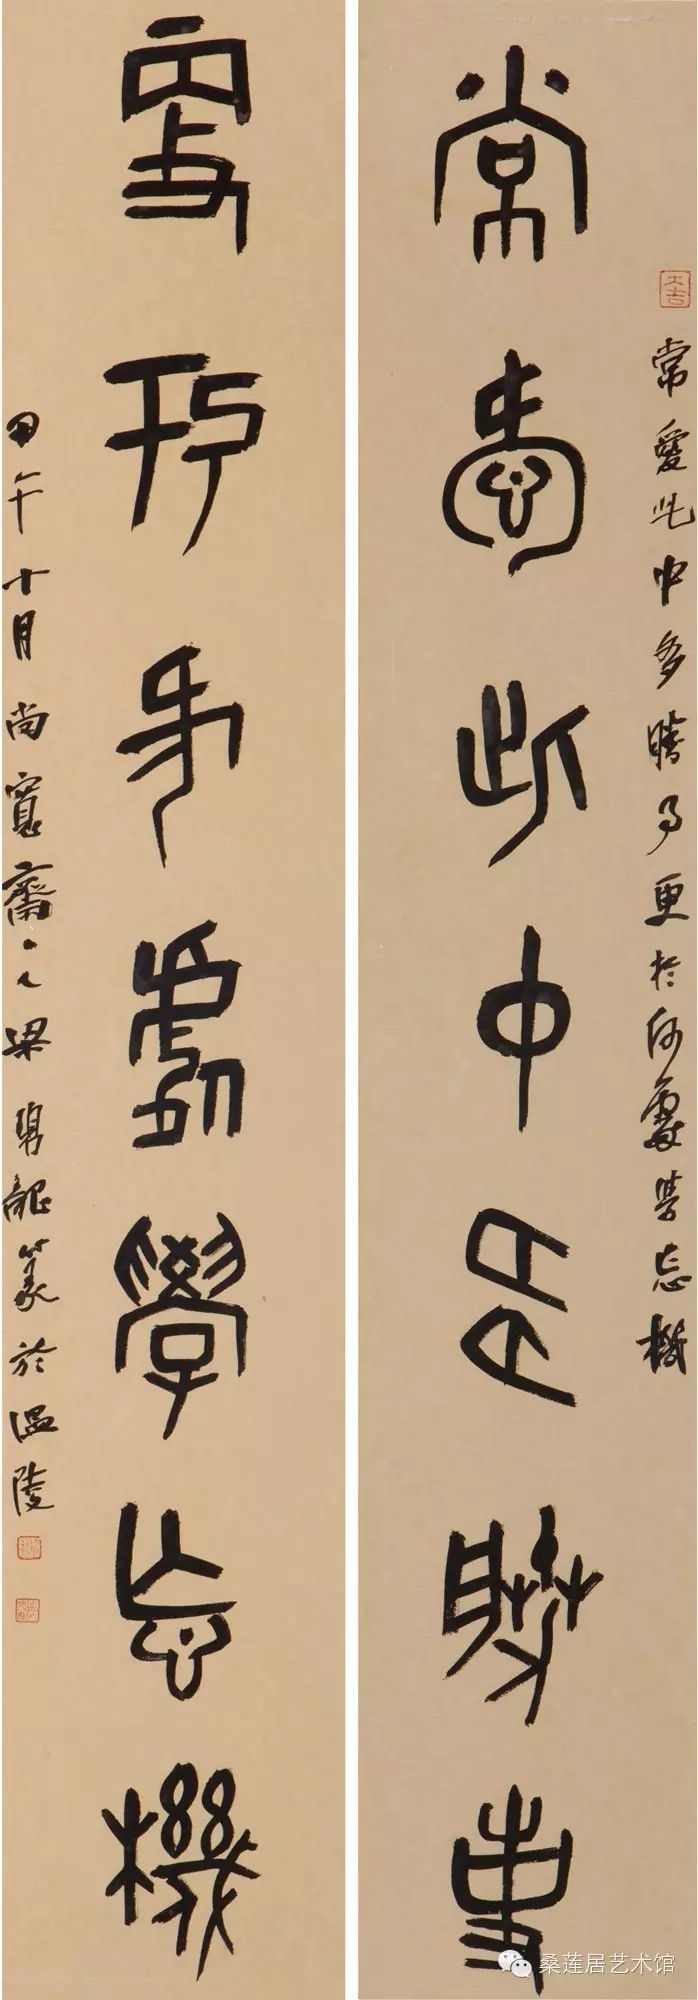 大吉
常愛此中多勝事更於何處學忘機
常愛此中多勝事
更於何處學忘機
甲午十月尚寬齋梁龍篆於溫陵
桑莲居艺术馆